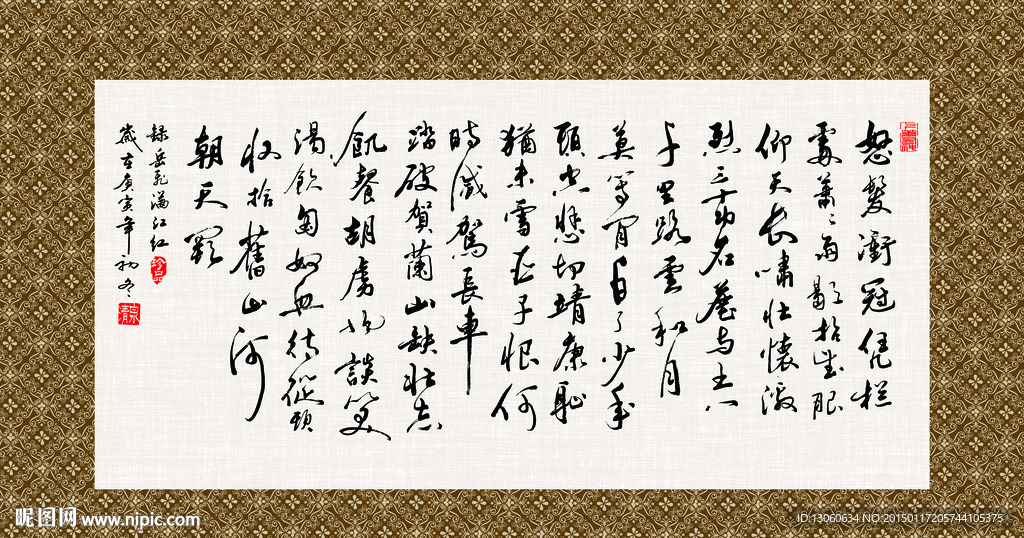 怒髮衝冠凭栏
處蕭〻雨歇抬望眼
仰天長嘯壮懷激
烈三十功名塵与土八
千里路雲和月
莫等闲白了少年
頭空悲切靖康恥
猶未雪臣子恨何
時滅駕長車
踏破賀蘭山缺壮志
飢餐胡虜肉談笑
渴飲匈奴血待從頭
收拾舊山河
朝天闕
録岳飛滿江红
歲在庚寅年初冬
昵图网 www.nipic.com
ID:13060634 NO:20150117205744105375